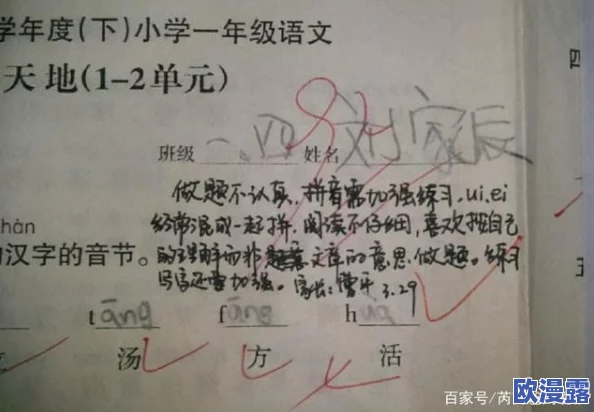 学年度(下)小学一年级语文
天地(1-2单元)
四
班级 一.四 姓名 刘家辰
做题不认真，拼音需加强练习，ui、ei
经常混成一起拼，阅读不仔细，喜欢按自己
hàn
的理解而非文章的意思做题。练习
汉字的音节。
写字还需加强。家长：曹平 3.29
tāng fāng huó
汤 方 活
百家号/芮
欧漫露